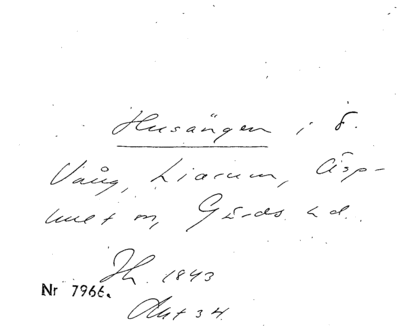 Husängen i Ö.
Vång, Liarum, Äsp-
huet m, Gärds hd.
Jh. 1843
Nr 7966.
Akt 34